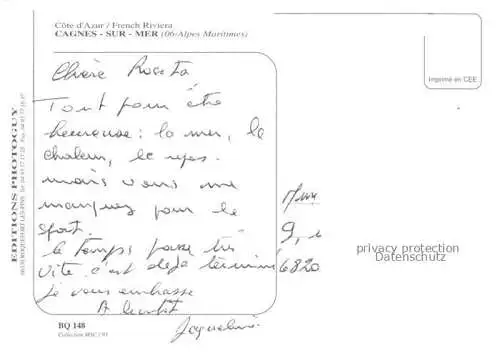 Côte d'Azur / French Riviera
CAGNES - SUR - MER (06/Alpes Maritimes)
Chère
Tout pour être
heureuse: la mer, la
chaleur, le repos.
mais vous me
manquez pour le
sport.
le temps passe très
vite c'est déjà terminé
je vous embrasse
A bientôt
Jacqueline
6820
EDITIONS PHOTOGUY
BQ 148
imprimé en CEE
privacy protection
Datenschutz